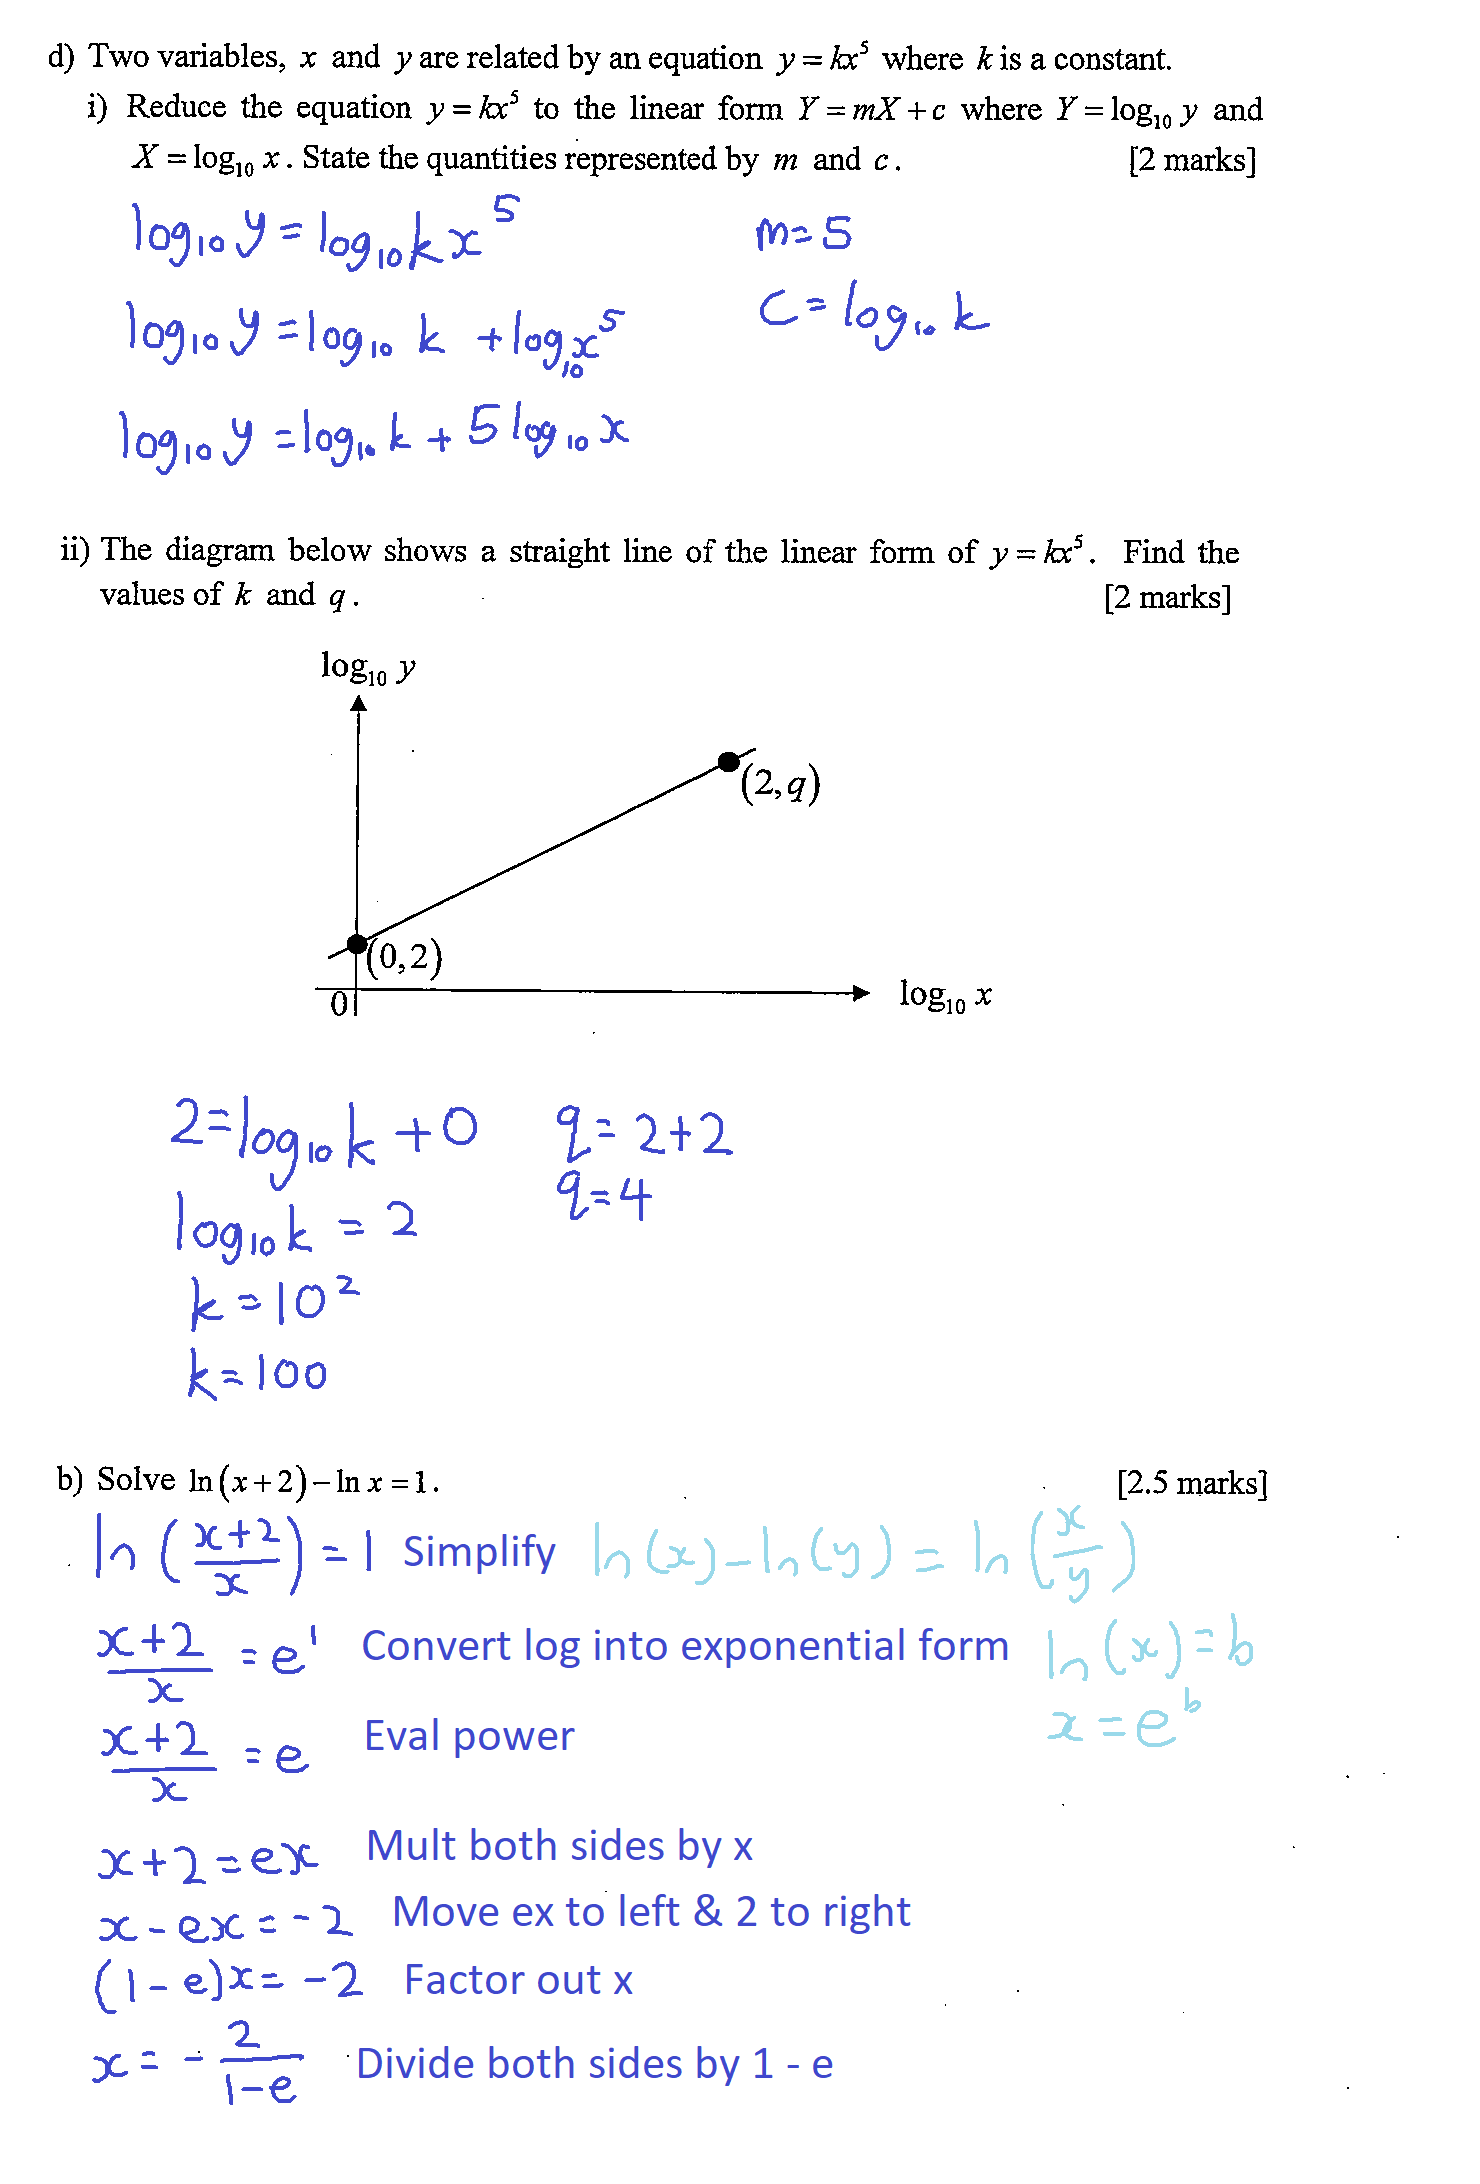 d) Two variables, x and y are related by an equation y = kx⁵ where k is a constant.
i) Reduce the equation y = kx⁵ to the linear form Y = mX + c where Y = log₁₀ y and
X = log₁₀ x. State the quantities represented by m and c. [2 marks]
log₁₀ y = log₁₀ kx⁵ m = 5
log₁₀ y = log₁₀ k + log₁₀ x⁵ c = log₁₀ k
log₁₀ y = log₁₀ k + 5 log₁₀ x
ii) The diagram below shows a straight line of the linear form of y = kx⁵. Find the
values of k and q. [2 marks]
log₁₀ y
(2, q)
(0, 2)
0
log₁₀ x
2 = log₁₀ k + 0 q = 2 + 2
log₁₀ k = 2 q = 4
k = 10²
k = 100
b) Solve ln(x + 2) – ln x = 1. [2.5 marks]
ln((x+2)/x) = 1 Simplify ln(x) – ln(y) = ln(x/y)
(x+2)/x = e¹ Convert log into exponential form ln(x) = b
(x+2)/x = e Eval power x = eᵇ
x + 2 = ex Mult both sides by x
x – ex = –2 Move ex to left & 2 to right
(1 – e)x = –2 Factor out x
x = – 2/(1–e) Divide both sides by 1 - e